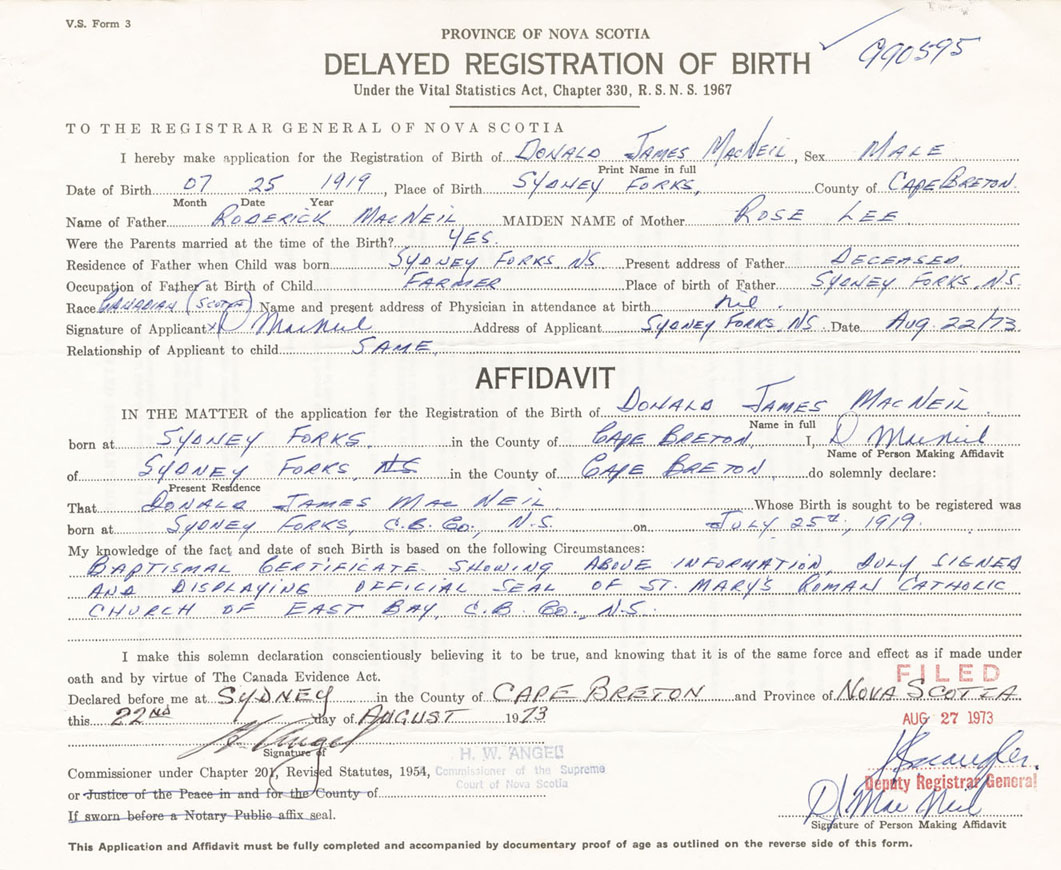 V.S. Form 3
PROVINCE OF NOVA SCOTIA
990595
DELAYED REGISTRATION OF BIRTH
Under the Vital Statistics Act, Chapter 330, R.S.N.S. 1967
TO THE REGISTRAR GENERAL OF NOVA SCOTIA
I hereby make application for the Registration of Birth of DONALD JAMES MACNEIL, Sex MALE
Print Name in full
Date of Birth 07 25 1919, Place of Birth SYDNEY FORKS, County of CAPE BRETON.
Month Date Year
Name of Father RODERICK MACNEIL MAIDEN NAME of Mother ROSE LEE
Were the Parents married at the time of the Birth? YES.
Residence of Father when Child was born SYDNEY FORKS, N.S. Present address of Father DECEASED
Occupation of Father at Birth of Child FARMER Place of birth of Father SYDNEY FORKS, N.S.
Race CANADIAN (SCOTIA) Name and present address of Physician in attendance at birth nil.
Signature of Applicant x D MacNeil Address of Applicant SYDNEY FORKS, N.S. Date AUG. 22/73.
Relationship of Applicant to child SAME.
AFFIDAVIT
IN THE MATTER of the application for the Registration of the Birth of DONALD JAMES MACNEIL.
Name in full
born at SYDNEY FORKS. in the County of CAPE BRETON I, D MacNeil
Name of Person Making Affidavit
of SYDNEY FORKS, NS in the County of CAPE BRETON do solemnly declare:
Present Residence
That DONALD JAMES MAC NEIL Whose Birth is sought to be registered was
born at SYDNEY FORKS, C.B. CO., N.S. on JULY 25th, 1919.
My knowledge of the fact and date of such Birth is based on the following Circumstances:
BAPTISMAL CERTIFICATE SHOWING ABOVE INFORMATION, DULY SIGNED
AND DISPLAYING OFFICIAL SEAL OF ST. MARY'S ROMAN CATHOLIC
CHURCH OF EAST BAY, C.B. CO., N.S.
I make this solemn declaration conscientiously believing it to be true, and knowing that it is of the same force and effect as if made under
oath and by virtue of The Canada Evidence Act.
FILED
Declared before me at SYDNEY in the County of CAPE BRETON and Province of NOVA SCOTIA
this 22ND day of AUGUST 1973
AUG 27 1973
H Angel
Signature of
H. W. ANGEL
Commissioner of the Supreme
Court of Nova Scotia
Commissioner under Chapter 201, Revised Statutes, 1954,
or Justice of the Peace in and for the County of
If sworn before a Notary Public affix seal.
Deputy Registrar General
D J MacNeil
Signature of Person Making Affidavit
This Application and Affidavit must be fully completed and accompanied by documentary proof of age as outlined on the reverse side of this form.